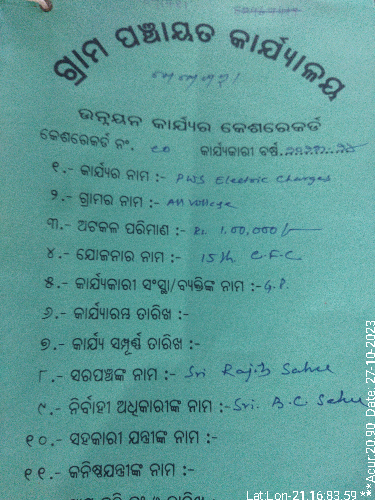 ଗ୍ରାମ ପଞ୍ଚାୟତ କାର୍ଯ୍ୟାଳୟ
ଉନ୍ନୟନ କାର୍ଯ୍ୟର କେଶରେକର୍ଡ
କେଶରେକର୍ଡ ନଂ. କାର୍ଯ୍ୟକାରୀ ବର୍ଷ
୧.- କାର୍ଯ୍ୟର ନାମ :- PWS Electric Charges
୨.- ଗ୍ରାମର ନାମ :- All Village
୩.- ଅଟକଳ ପରିମାଣ :- Rs. 1,00,000/-
୪.- ଯୋଜନାର ନାମ :- 15th C.F.C
୫.- କାର୍ଯ୍ୟକାରୀ ସଂସ୍ଥା/ବ୍ୟକ୍ତିଙ୍କ ନାମ :- G.P.
୬.- କାର୍ଯ୍ୟାରମ୍ଭ ତାରିଖ :-
୭.- କାର୍ଯ୍ୟ ସମ୍ପୂର୍ଣ୍ଣ ତାରିଖ :-
୮.- ସରପଞ୍ଚଙ୍କ ନାମ :- Sri Rajib Sahu
୯.- ନିର୍ବାହୀ ଅଧିକାରୀଙ୍କ ନାମ :- Sri. B.C. Sahu
୧୦.- ସହକାରୀ ଯନ୍ତ୍ରୀଙ୍କ ନାମ :-
୧୧.- କନିଷ୍ଠଯନ୍ତ୍ରୀଙ୍କ ନାମ :-
Lat:Lon-21.16:83.59
***Acur:20.90, Date: 27-10-2023